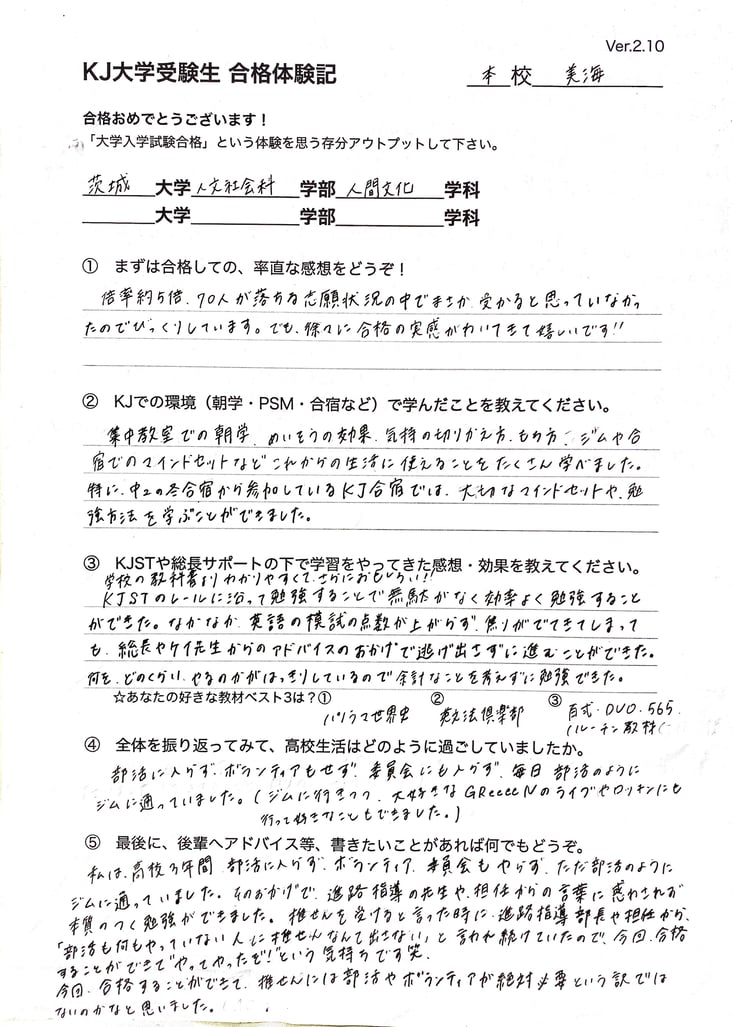 Ver.2.10
KJ大学受験生 合格体験記
本校 美海
合格おめでとうございます！
「大学入学試験合格」という体験を思う存分アウトプットして下さい。
茨城 大学 人文社会科 学部 人間文化 学科
大学 学部 学科
① まずは合格しての、率直な感想をどうぞ！
倍率約5倍、70人が落ちる志願状況の中でまさか受かると思っていなかっ
たのでびっくりしています。でも、徐々に合格の実感がわいてきて嬉しいです!!
② KJでの環境（朝学・PSM・合宿など）で学んだことを教えてください。
集中教室での朝学、めいそうの効果、気持の切りかえ方、もち方、ジムや合
宿でのマインドセットなどこれからの生活に使えることをたくさん学べました。
特に、中2の冬合宿から参加しているKJ合宿では、大切なマインドセットや、勉
強方法を学ぶことができました。
③ KJSTや総長サポートの下で学習をやってきた感想・効果を教えてください。
学校の教科書よりわかりやすくて、さらにおもしろい!!
KJSTのレールに沿って勉強することで無駄がなく効率よく勉強すること
ができた。なかなか、英語の模試の点数が上がらず、焦りがでてきてしまって
も、総長やケイ先生からのアドバイスのおかげで逃げ出さずに進むことができた。
何を、どのくらい、やるのかがはっきりしているので余計なことを考えずに勉強できた。
☆あなたの好きな教材ベスト3は？① ② ③
パノラマ世界史 英文法倶楽部 百式・DUO・565.
(ルーチン教材(
④ 全体を振り返ってみて、高校生活はどのように過ごしていましたか。
部活に入らず、ボランティアもせず、委員会にも入らず、毎日 部活のように
ジムに通っていました。(ジムに行きつつ、大好きなGReeeeNのライブやロッキンにも
行って好きなこともできました。)
⑤ 最後に、後輩へアドバイス等、書きたいことがあれば何でもどうぞ。
私は、高校3年間、部活に入らず、ボランティア、委員会もやらず、ただ部活のように
ジムに通っていました。そのおかげで、進路指導の先生や、担任からの言葉に惑わされず
本質のつく勉強ができました。推せんを受けると言った時に、進路指導部長や担任から、
「部活も何もやっていない人に推せんなんて出さない」と言われ続けていたので、今回、合格
することができて"やってやったぞ！"という気持ちです笑.
今回、合格することができて、推せんには部活やボランティアが絶対必要という訳では
ないのかなと思いました。